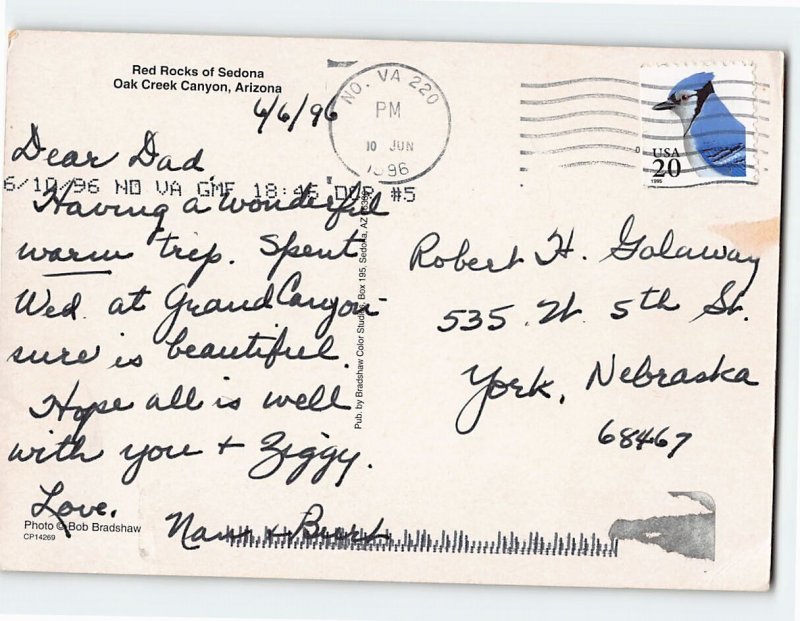 Red Rocks of Sedona
Oak Creek Canyon, Arizona
6/6/96
Dear Dad,
Having a wonderful
warm trip. Spent
Wed. at Grand Canyon
sure is beautiful.
Hope all is well
with you + Ziggy.
Love.
Photo © Bob Bradshaw
CP14269
6/10/96 NO VA GMF 18:46 #5
Pub. by Bradshaw Color Studios, Box 195, Sedona, AZ
NO. VA 220
PM
10 JUN
1996
USA
20
1995
Robert H. Galaway
535 W. 5th St.
York, Nebraska
68467